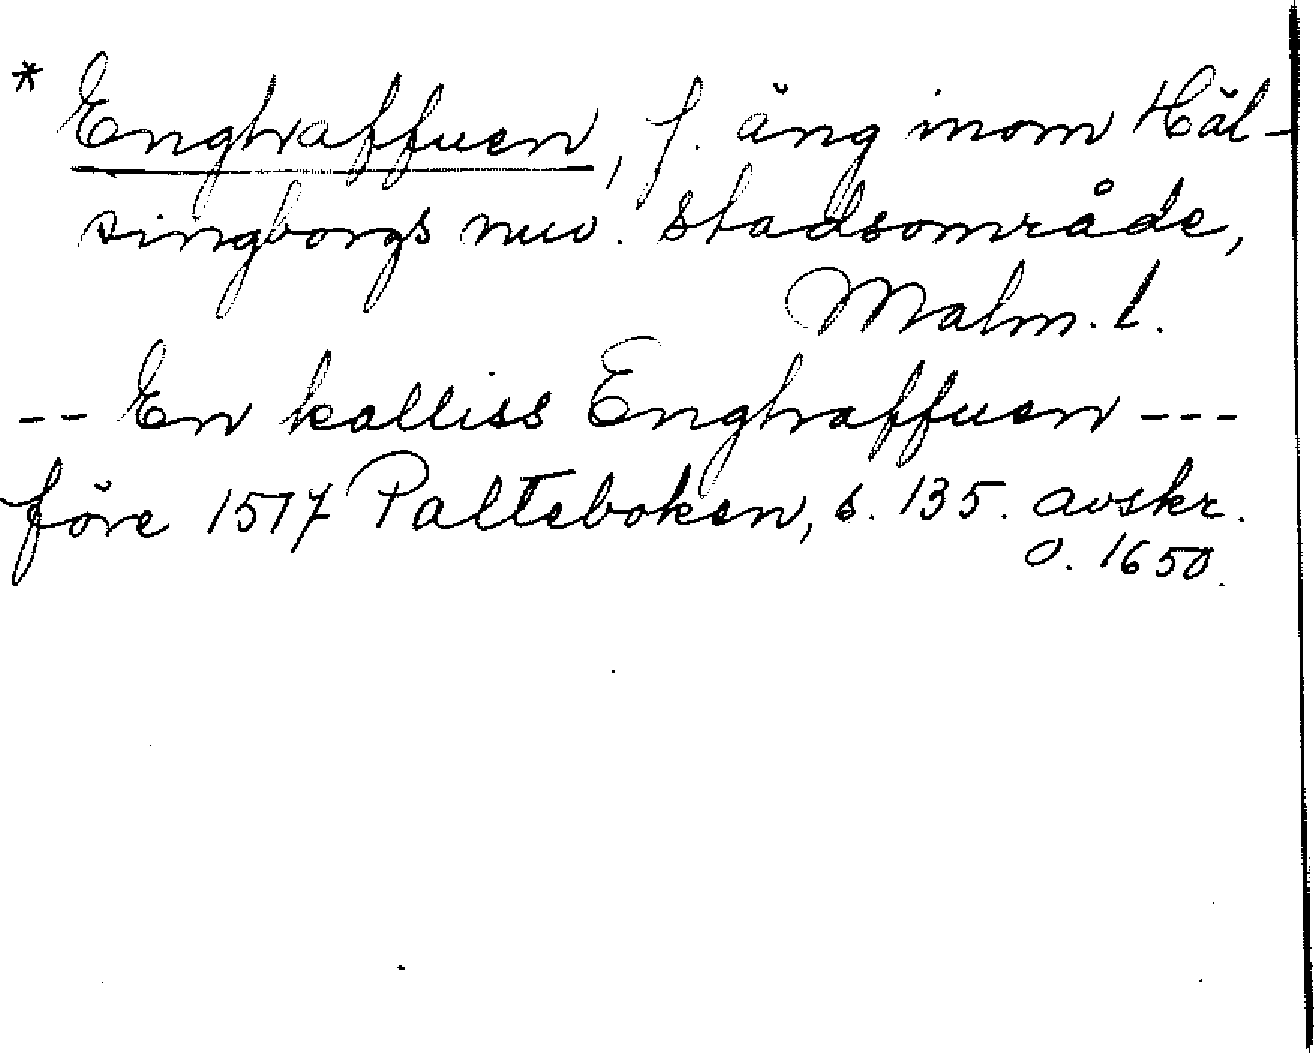 * Enghaffuen, f. äng inom Häl-
singborgs nuv. stadsområde,
Malm. l.
-- En kalliss Enghaffuen ---
före 1517 Palteboken, s. 135. avskr.
o. 1650.